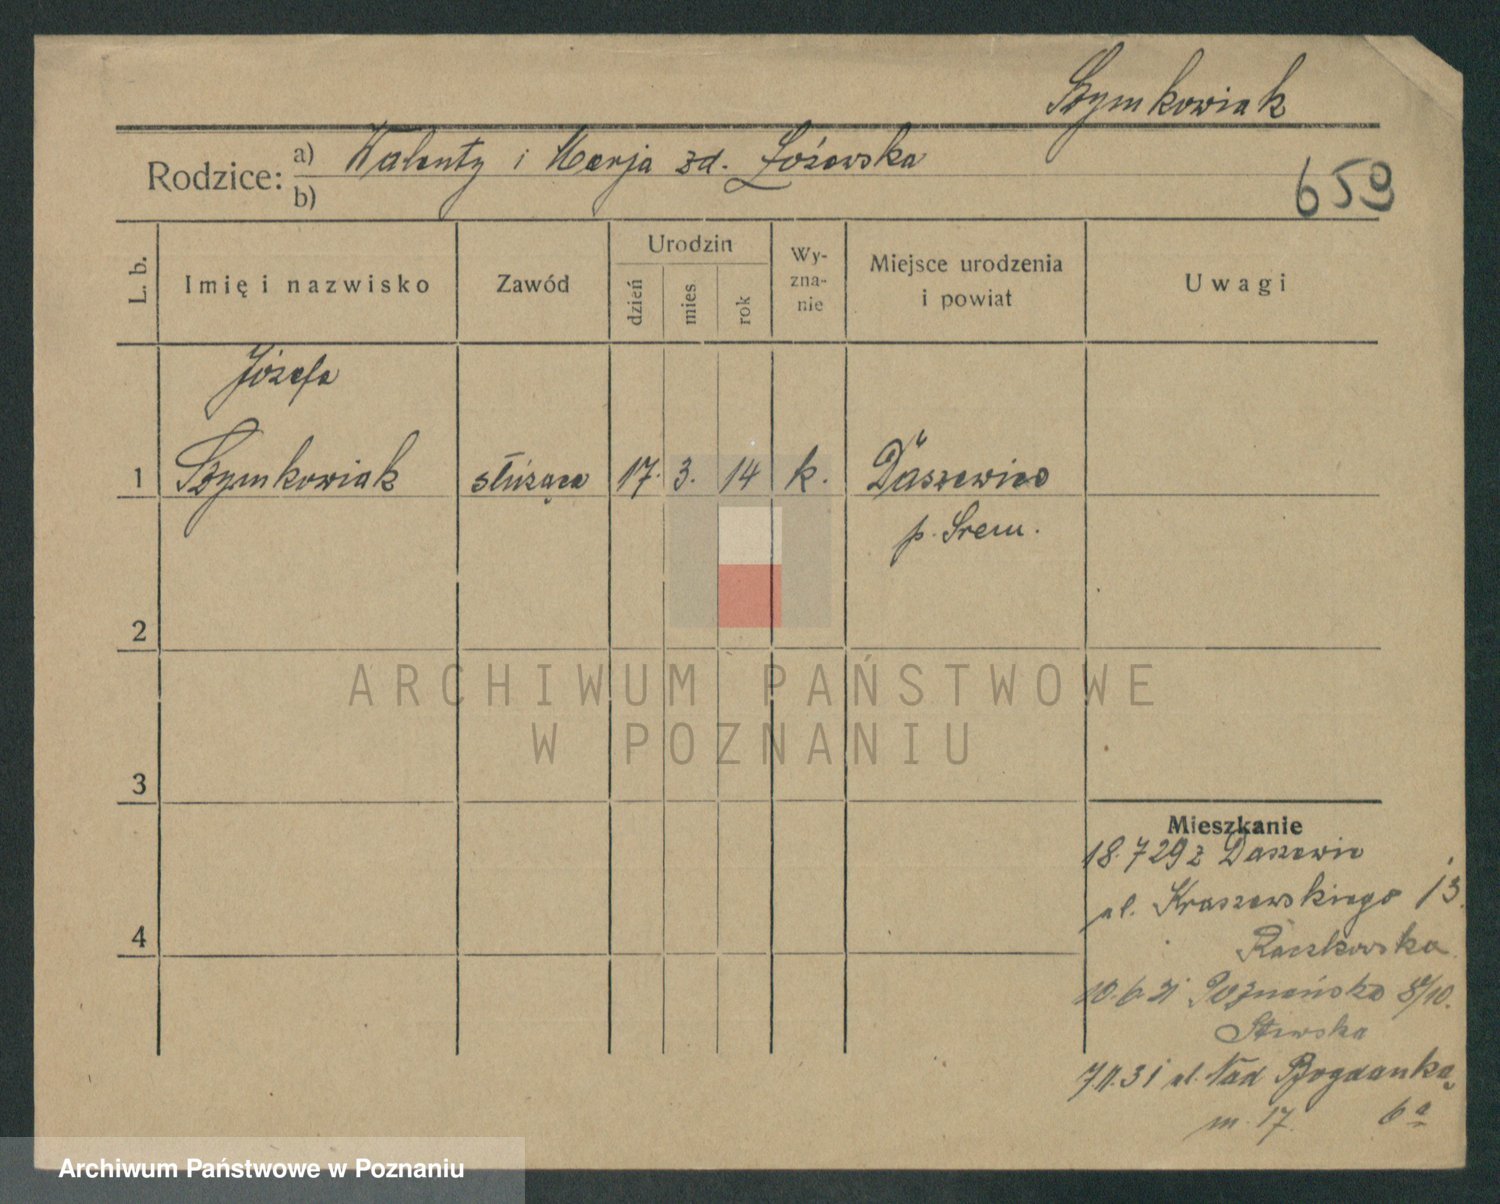 Szymkowiak
Rodzice: a) Walenty i Marja zd. Łożewska
b)
659
L. b.
Imię i nazwisko
Zawód
Urodzin
dzień
mies
rok
Wy-
zna-
nie
Miejsce urodzenia
i powiat
Uwagi
Józefa
1 Szymkowiak służąca 17. 3. 14 k. Daszewice
p. Śrem.
2
3
4
ARCHIWUM PAŃSTWOWE
W POZNANIU
Mieszkanie
18.7 29 z Daszewic
ul. Kraszewskiego 13.
Raczkowska.
10.6.31 Poznańska
7.11.31 ul. Nad Bogdanką
m. 17. 6a
Archiwum Państwowe w Poznaniu